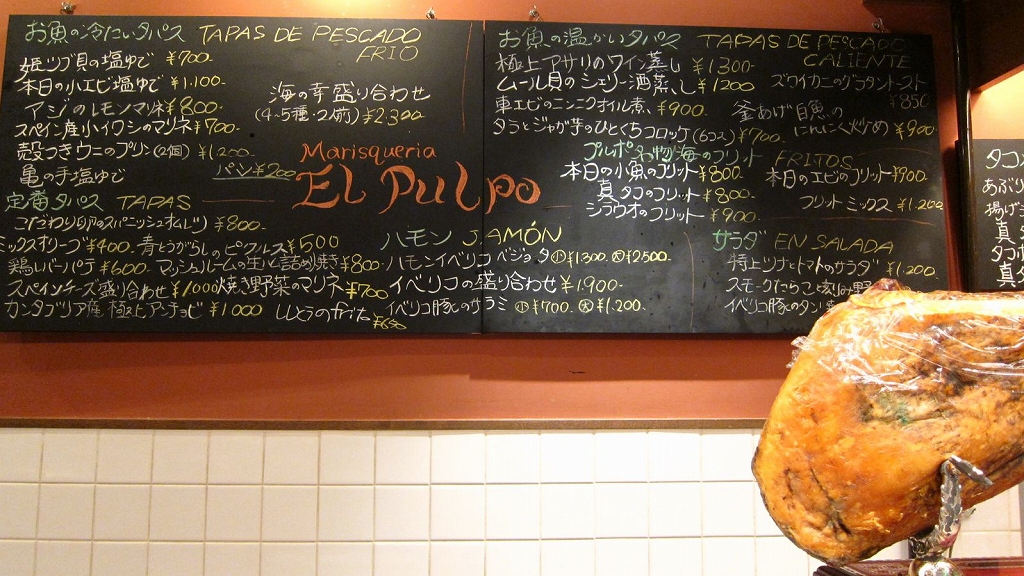 お魚の冷たいタパス TAPAS DE PESCADO
FRIO
姫ツブ貝の塩ゆで ¥700-
本日の小エビ塩ゆで ¥1.100-
アジのレモンマリネ ¥800-
スペイン産小イワシのマリネ ¥700-
殻つきウニのプリン(2個) ¥1.200-
亀の手塩ゆで
海の幸盛り合わせ
(4~5種・2人前) ¥2300-
パン ¥200
Marisqueria
EL Pulpo
定番タパス TAPAS
こだわり卵のスパニッシュオムレツ ¥800-
ミックスオリーブ ¥400- 青とうがらしのピクルス ¥500
鶏レバーパテ ¥600- マッシュルームの生ハム詰め焼き ¥800-
スペインチーズ盛り合わせ ¥1000 焼き野菜のマリネ ¥700
カンタブリア産 極上アンチョビ ¥1000
ハモン JAMÓN
ハモンイベリコ ベジョータ 小¥1300. 大¥2500-
イベリコの盛り合わせ ¥1.900-
イベリコ豚のサラミ 小¥700. 大¥1.200-
お魚の温かいタパス TAPAS DE PESCADO
CALIENTE
極上アサリのワイン蒸し ¥1300-
ムール貝のシェリー酒蒸し ¥1200
車エビのニンニクオイル煮 ¥900-
タラとジャガ芋のひとくちコロッケ(6コ) ¥700-
ズワイカニのグラタントースト
¥850
釜あげ白魚の
にんにく炒め ¥900-
プルポ名物海のフリット FRITOS
本日の小魚のフリット ¥800-
真ダコのフリット ¥800-
シラウオのフリット ¥900-
本日のエビのフリット ¥900-
フリットミックス ¥1,200
サラダ EN SALADA
特上ツナとトマトのサラダ ¥1,200
スモークたらこと
イベリコ豚のタン
タコ
あぶり
揚げ
真ダ
タコ
真ダ